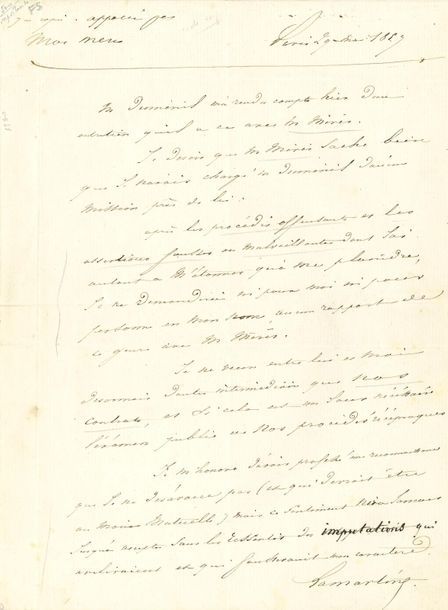 appelé pas
Paris 1857
M. Dumésnil m'a rendu compte hier d'un
entretien qu'il a eu avec M. Mirès.
Je désire que M. Mirès sache bien
que je n'avais chargé M. Dumésnil d'aucune
mission près de lui.
après les procédés offensants et les
assertions fausses ou malveillantes dont j'ai
autant à m'étonner qu'à me plaindre,
Je ne demanderai ni pour moi ni pour
personne en mon nom aucun rapport de
ce genre avec M. Mirès.
Je ne veux entre lui et moi
désormais d'autre intermédiaire que nos
contrats, et si cela est un jour nécessaire
l'examen public de nos procédés réciproques
Je m'honore d'avoir professé une reconnaissance
que je ne désavoue pas (et qui devrait être
au moins mutuelle) mais ce sentiment
sans les imputations qui
aviliraient et qui mon caractère
Lamartine